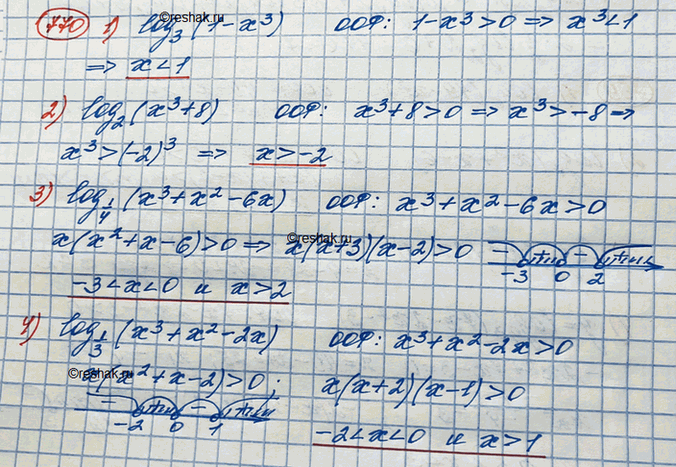 770 1) log₃(1-x³) ООФ: 1-x³>0 => x³<1
©reshak.ru
=> x<1
2) log₂(x³+8) ООФ: x³+8>0 => x³>-8 =>
x³>(-2)³ => x>-2
3) log_{1/4}(x³+x²-6x) ООФ: x³+x²-6x>0
x(x²+x-6)>0 => x(x+3)(x-2)>0 - + - +
©reshak.ru
-3 0 2
-3<x<0 и x>2
4) log_{1/3}(x³+x²-2x) ООФ: x³+x²-2x>0
©reshak.ru
x(x²+x-2)>0; x(x+2)(x-1)>0
- + - +
-2 0 1
-2<x<0 и x>1